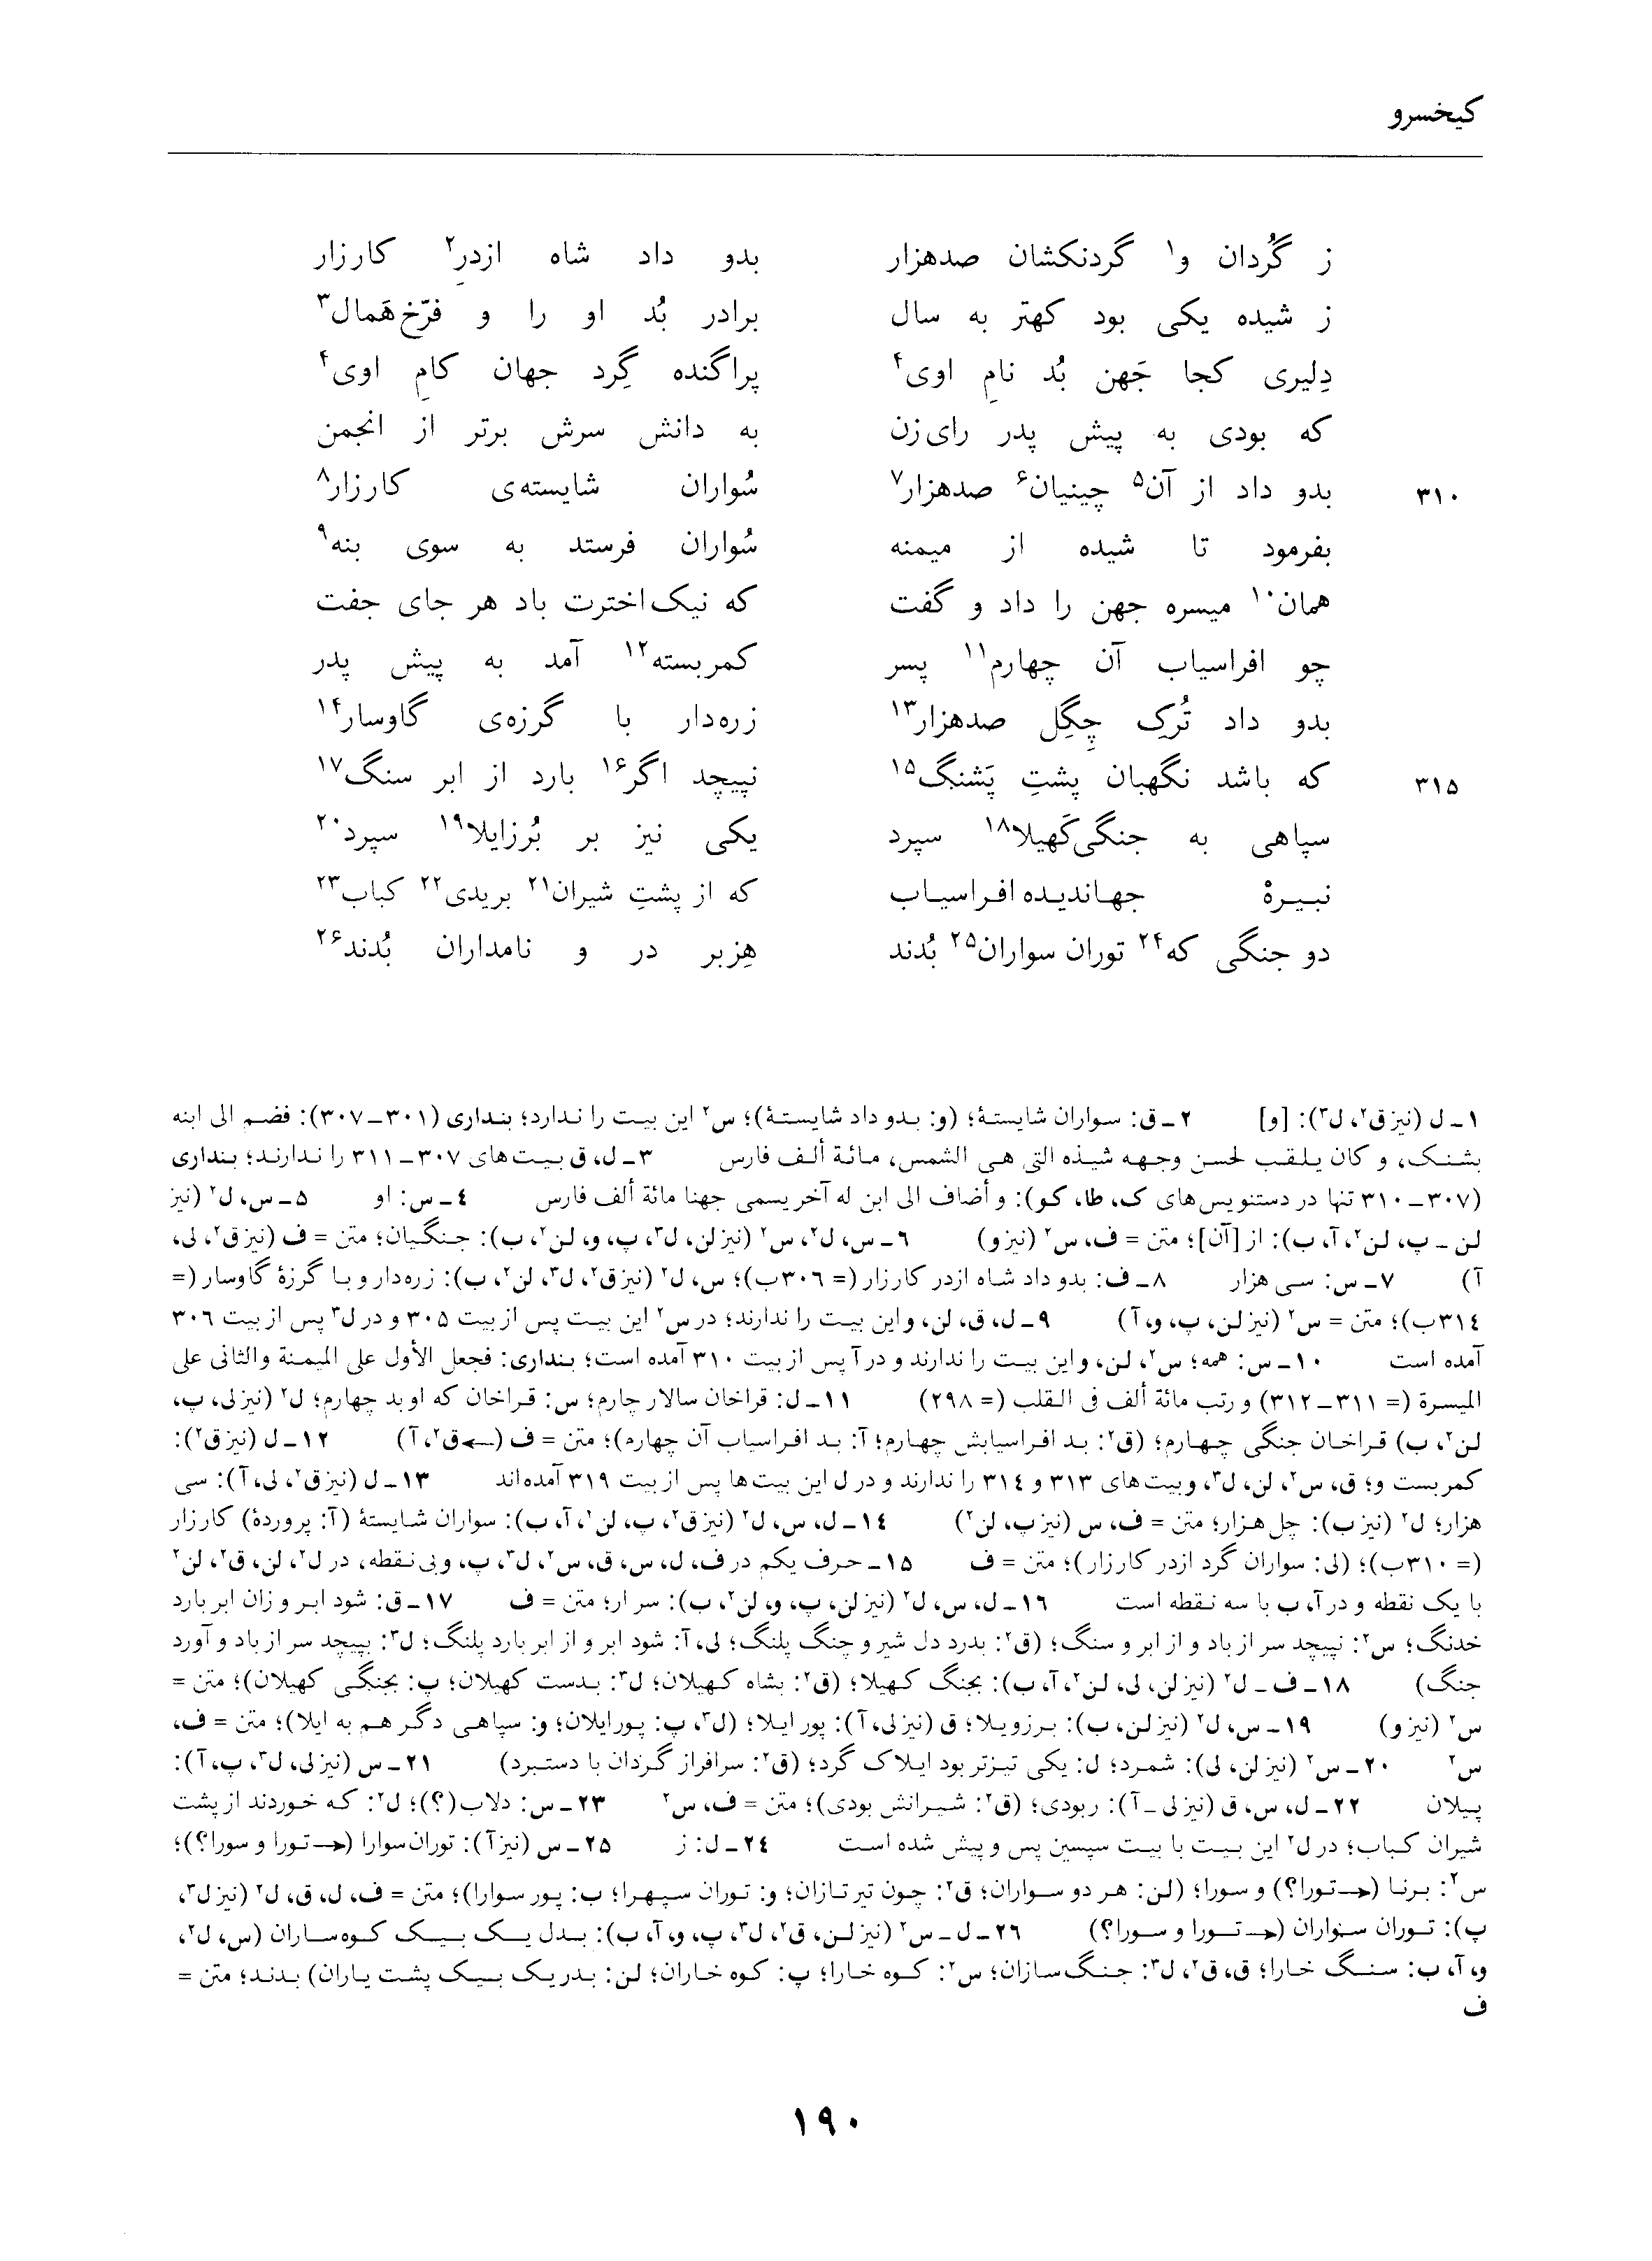 کیخسرو
ز گُردان و۱ گردنکشان صدهزار بدو داد شاه ازدرِ۲ کارزار
ز شیده یکی بود کهتر به سال برادر بُد او را و فرّخ‌هَمال۳
دِلیری کجا جَهن بُد نامِ اوی۴ پراگنده گِرد جهان کامِ اوی۴
که بودی به پیش پدر رای‌زن به دانش سرش برتر از انجمن
۳۱۰ بدو داد از آن۵ چینیان۶ صدهزار۷ سُواران شایسته‌ی کارزار۸
بفرمود تا شیده از میمنه سُواران فرستد به سوی بنه۹
همان۱۰ میسره جهن را داد و گفت که نیک‌اخترت باد هر جای جفت
چو افراسیاب آن چهارم۱۱ پسر کمربسته۱۲ آمد به پیش پدر
بدو داد تُرکِ چِگِل صدهزار۱۳ زره‌دار با گرزه‌ی گاوسار۱۴
۳۱۵ که باشد نگهبان پشتِ پَشنگ۱۵ نپیچد اگر۱۶ بارد از ابر سنگ۱۷
سپاهی به جنگی‌کَهیلا۱۸ سپرد یکی نیز بر بُرزایلا۱۹ سپرد۲۰
نبیرهٔ جهاندیده افراسیاب که از پشتِ شیران۲۱ بریدی۲۲ کباب۲۳
دو جنگی که۲۴ توران سواران۲۵ بُدند هِزبر در و نامداران بُدند۲۶
۱ـ ل (نیز ق۲، ل۳): [و] ۲ـ ق: سواران شایستهٔ؛ (و: بدو داد شایستهٔ)؛ س۲ این بیت را ندارد؛ بنداری (۳۰۱ـ۳۰۷): فضم الی ابنه
بشنک، و کان یلقب لحسن وجهه شیذه التی هی الشمس، مائة ألف فارس ۳ـ ل، ق بیت‌های ۳۰۷ـ۳۱۱ را ندارند؛ بنداری
(۳۰۷ـ۳۱۰ تنها در دستنویس‌های ک، طا، کو): و أضاف الی ابن له آخر یسمی جهنا مائة ألف فارس ۴ـ س: او ۵ـ س، ل۲ (نیز
لن ـ پ، لن۲، آ، ب): از [آن]؛ متن = ف، س۲ (نیز و) ۶ـ س، ل۲، س۲ (نیز لن، ل۳، پ، و، لن۲، ب): جنگیان؛ متن = ف (نیز ق۲، لی،
آ) ۷ـ س: سی هزار ۸ـ ف: بدو داد شاه ازدر کارزار (= ۳۰۶ب)؛ س، ل۲ (نیز ق۲، ل۳، لن۲، ب): زره‌دار و با گرزهٔ گاوسار (=
۳۱۴ب)؛ متن = س۲ (نیز لن، پ، و، آ) ۹ـ ل، ق، لن، و این بیت را ندارند؛ در س۲ این بیت پس از بیت ۳۰۵ و در ل۳ پس از بیت ۳۰۶
آمده است ۱۰ـ س: همه؛ س۲، لن، و این بیت را ندارند و در آ پس از بیت ۳۱۰ آمده است؛ بنداری: فجعل الأول علی المیمنة والثانی علی
المیسرة (= ۳۱۱ـ۳۱۲) و رتب مائة ألف فی القلب (= ۲۹۸) ۱۱ـ ل: قراخان سالار چارم؛ س: قراخان که او بد چهارم؛ ل۲ (نیز لی، پ،
لن۲، ب) قراخان جنگی چهارم؛ (ق۲: بد افراسیابش چهارم؛ آ: بد افراسیاب آن چهارم)؛ متن = ف (←ق۲، آ) ۱۲ـ ل (نیز ق۲):
کمربست و؛ ق، س۲، لن، ل۳، و بیت‌های ۳۱۳ و ۳۱۴ را ندارند و در ل این بیت‌ها پس از بیت ۳۱۹ آمده‌اند ۱۳ـ ل (نیز ق۲، لی، آ): سی
هزار؛ ل۲ (نیز ب): چل هزار؛ متن = ف، س (نیز پ، لن۲) ۱۴ـ ل، س، ل۲ (نیز ق۲، پ، لن۲، آ، ب): سواران شایستهٔ (آ: پروردهٔ) کارزار
(= ۳۱۰ب)؛ (لی: سواران گرد ازدر کارزار)؛ متن = ف ۱۵ـ حرف یکم در ف، ل، س، ق، س۲، ل۳، پ، و بی‌نقطه، در ل۲، لن، ق۲، لن۲
با یک نقطه و در آ، ب با سه نقطه است ۱۶ـ ل، س، ل۲ (نیز لن، پ، و، لن۲، ب): سر ار؛ متن = ف ۱۷ـ ق: شود ابر و زان ابر بارد
خدنگ؛ س۲: نپیچد سر از باد و از ابر و سنگ؛ (ق۲: بدرد دل شیر و چنگ پلنگ؛ لی، آ: شود ابر و از ابر بارد پلنگ؛ ل۳: بپیچد سر از باد و آورد
جنگ) ۱۸ـ ف ـ ل۲ (نیز لن، لی، لن۲، آ، ب): بجنگ کهیلا؛ (ق۲: بشاه کهیلان؛ ل۳: بدست کهیلان؛ پ: بجنگی کهیلان)؛ متن =
س۲ (نیز و) ۱۹ـ س، ل۲ (نیز لن، ب): برزویلا؛ ق (نیز لی، آ): پور ایلا؛ (ل۳، پ: پورایلان؛ و: سپاهی دگر هم به ایلا)؛ متن = ف،
س۲ ۲۰ـ س۲ (نیز لن، لی): شمرد؛ ل: یکی تیزتر بود ایلاک گرد؛ (ق۲: سرافراز گردان با دستبرد) ۲۱ـ س (نیز لی، ل۳، پ، آ):
پیلان ۲۲ـ ل، س، ق (نیز لی ـ آ): ربودی؛ (ق۲: شیرانش بودی)؛ متن = ف، س۲ ۲۳ـ س: دلاب(؟)؛ ل۲: که خوردند از پشت
شیران کباب؛ در ل۲ این بیت با بیت سپسین پس و پیش شده است ۲۴ـ ل: ز ۲۵ـ س (نیز آ): توران سوارا (←تورا و سورا؟)؛
س۲: برنا (←تورا؟) و سورا؛ (لن: هر دو سواران؛ ق۲: چون تیر تازان؛ و: توران سپهرا؛ ب: پور سوارا)؛ متن = ف، ل، ق، ل۲ (نیز ل۳،
پ): توران سواران (←تورا و سورا؟) ۲۶ـ ل ـ س۲ (نیز لن، ق۲، ل۳، پ، و، آ، ب): بدل یک بیک کوه‌ساران (س، ل۲،
و، آ، ب: سنگ خارا؛ ق، ق۲، ل۳: جنگ‌سازان؛ س۲: کوه خارا؛ پ: کوه خاران؛ لن: بدر یک بیک پشت یاران) بدند؛ متن =
ف
۱۹۰